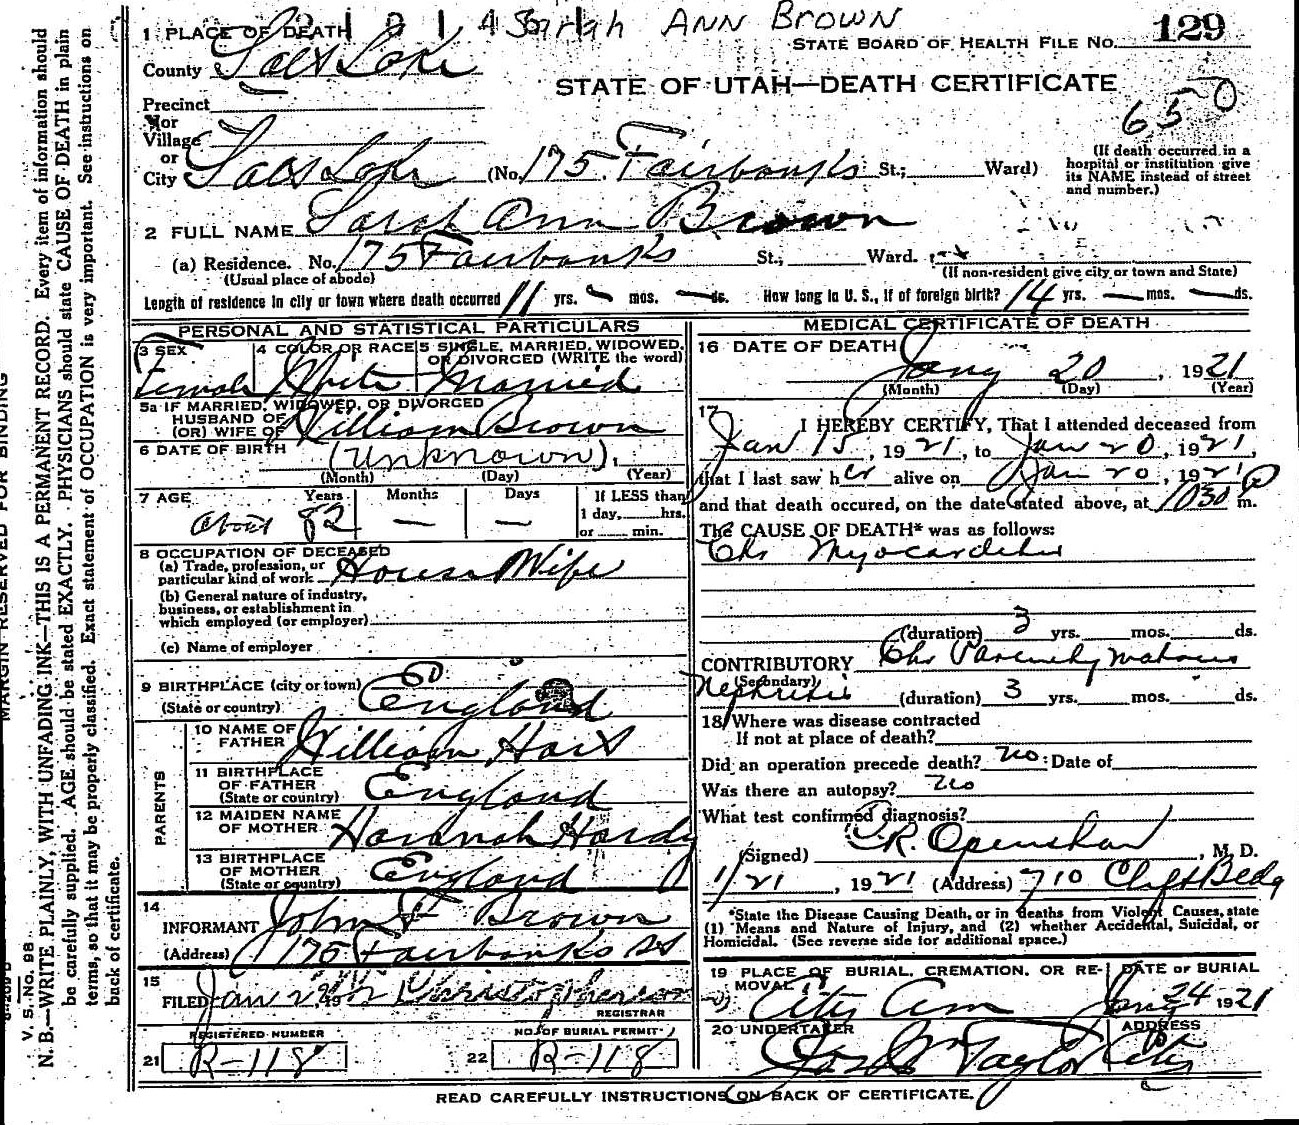 Sarah ANN BROWN
1 PLACE OF DEATH
STATE BOARD OF HEALTH FILE No. 129
County Salt Lake
STATE OF UTAH—DEATH CERTIFICATE
650
Precinct
or
Village
or
City Salt Lake (No. 175 Fairbanks St.; Ward)
(If death occurred in a hospital or institution give its NAME instead of street and number.)
2 FULL NAME Sarah Ann Brown
(a) Residence. No. 175 Fairbanks St.; Ward.
(Usual place of abode) (If non-resident give city or town and State)
Length of residence in city or town where death occurred 11 yrs. — mos. — ds. How long in U. S., if of foreign birth? 14 yrs. — mos. — ds.
PERSONAL AND STATISTICAL PARTICULARS
3 SEX Female
4 COLOR OR RACE White
5 SINGLE, MARRIED, WIDOWED, OR DIVORCED (WRITE the word) Married
5a IF MARRIED, WIDOWED, OR DIVORCED
HUSBAND OF
(OR) WIFE OF William Brown
6 DATE OF BIRTH (unknown).
(Month) (Day) (Year)
7 AGE About Years 82 Months — Days —
If LESS than 1 day, hrs. or min.
8 OCCUPATION OF DECEASED
(a) Trade, profession, or particular kind of work House Wife
(b) General nature of industry, business, or establishment in which employed (or employer)
(c) Name of employer
9 BIRTHPLACE (city or town)
(State or country) England
PARENTS
10 NAME OF FATHER William Hart
11 BIRTHPLACE OF FATHER (State or country) England
12 MAIDEN NAME OF MOTHER Hannah Hardy
13 BIRTHPLACE OF MOTHER (State or country) England
14
INFORMANT John F Brown
(Address) 175 Fairbanks St
15
FILED Jan
REGISTRAR
REGISTERED NUMBER
21 R-118
NO. OF BURIAL PERMIT
22 R-118
MEDICAL CERTIFICATE OF DEATH
16 DATE OF DEATH
Jany 20, 1921
(Month) (Day) (Year)
17
I HEREBY CERTIFY, That I attended deceased from
Jan 15, 1921, to Jan 20, 1921,
that I last saw her alive on Jan 20, 1921
and that death occured, on the date stated above, at 1030 P m.
The CAUSE OF DEATH* was as follows:
Chr Myocarditis
(duration) 3 yrs. mos. ds.
CONTRIBUTORY Chr Parenchymatous
(Secondary)
Nephritis (duration) 3 yrs. mos. ds.
18 Where was disease contracted
If not at place of death?
Did an operation precede death? no: Date of
Was there an autopsy? no
What test confirmed diagnosis?
(Signed) R. Openshaw, M. D.
1/21, 1921 (Address) 710 Clift Bldg
*State the Disease Causing Death, or in deaths from Violent Causes, state
(1) Means and Nature of Injury, and (2) whether Accidental, Suicidal, or
Homicidal. (See reverse side for additional space.)
19 PLACE OF BURIAL, CREMATION, OR REMOVAL City Cem
DATE OF BURIAL Jany 24 1921
20 UNDERTAKER Jos Wm Taylor
ADDRESS City
READ CAREFULLY INSTRUCTIONS ON BACK OF CERTIFICATE.
MARGIN RESERVED FOR BINDING
V. S. No. 98
N. B.—WRITE PLAINLY, WITH UNFADING INK—THIS IS A PERMANENT RECORD. Every item of information should
be carefully supplied. AGE should be stated EXACTLY. PHYSICIANS should state CAUSE OF DEATH in plain
terms, so that it may be properly classified. Exact statement of OCCUPATION is very important. See instructions on
back of certificate.